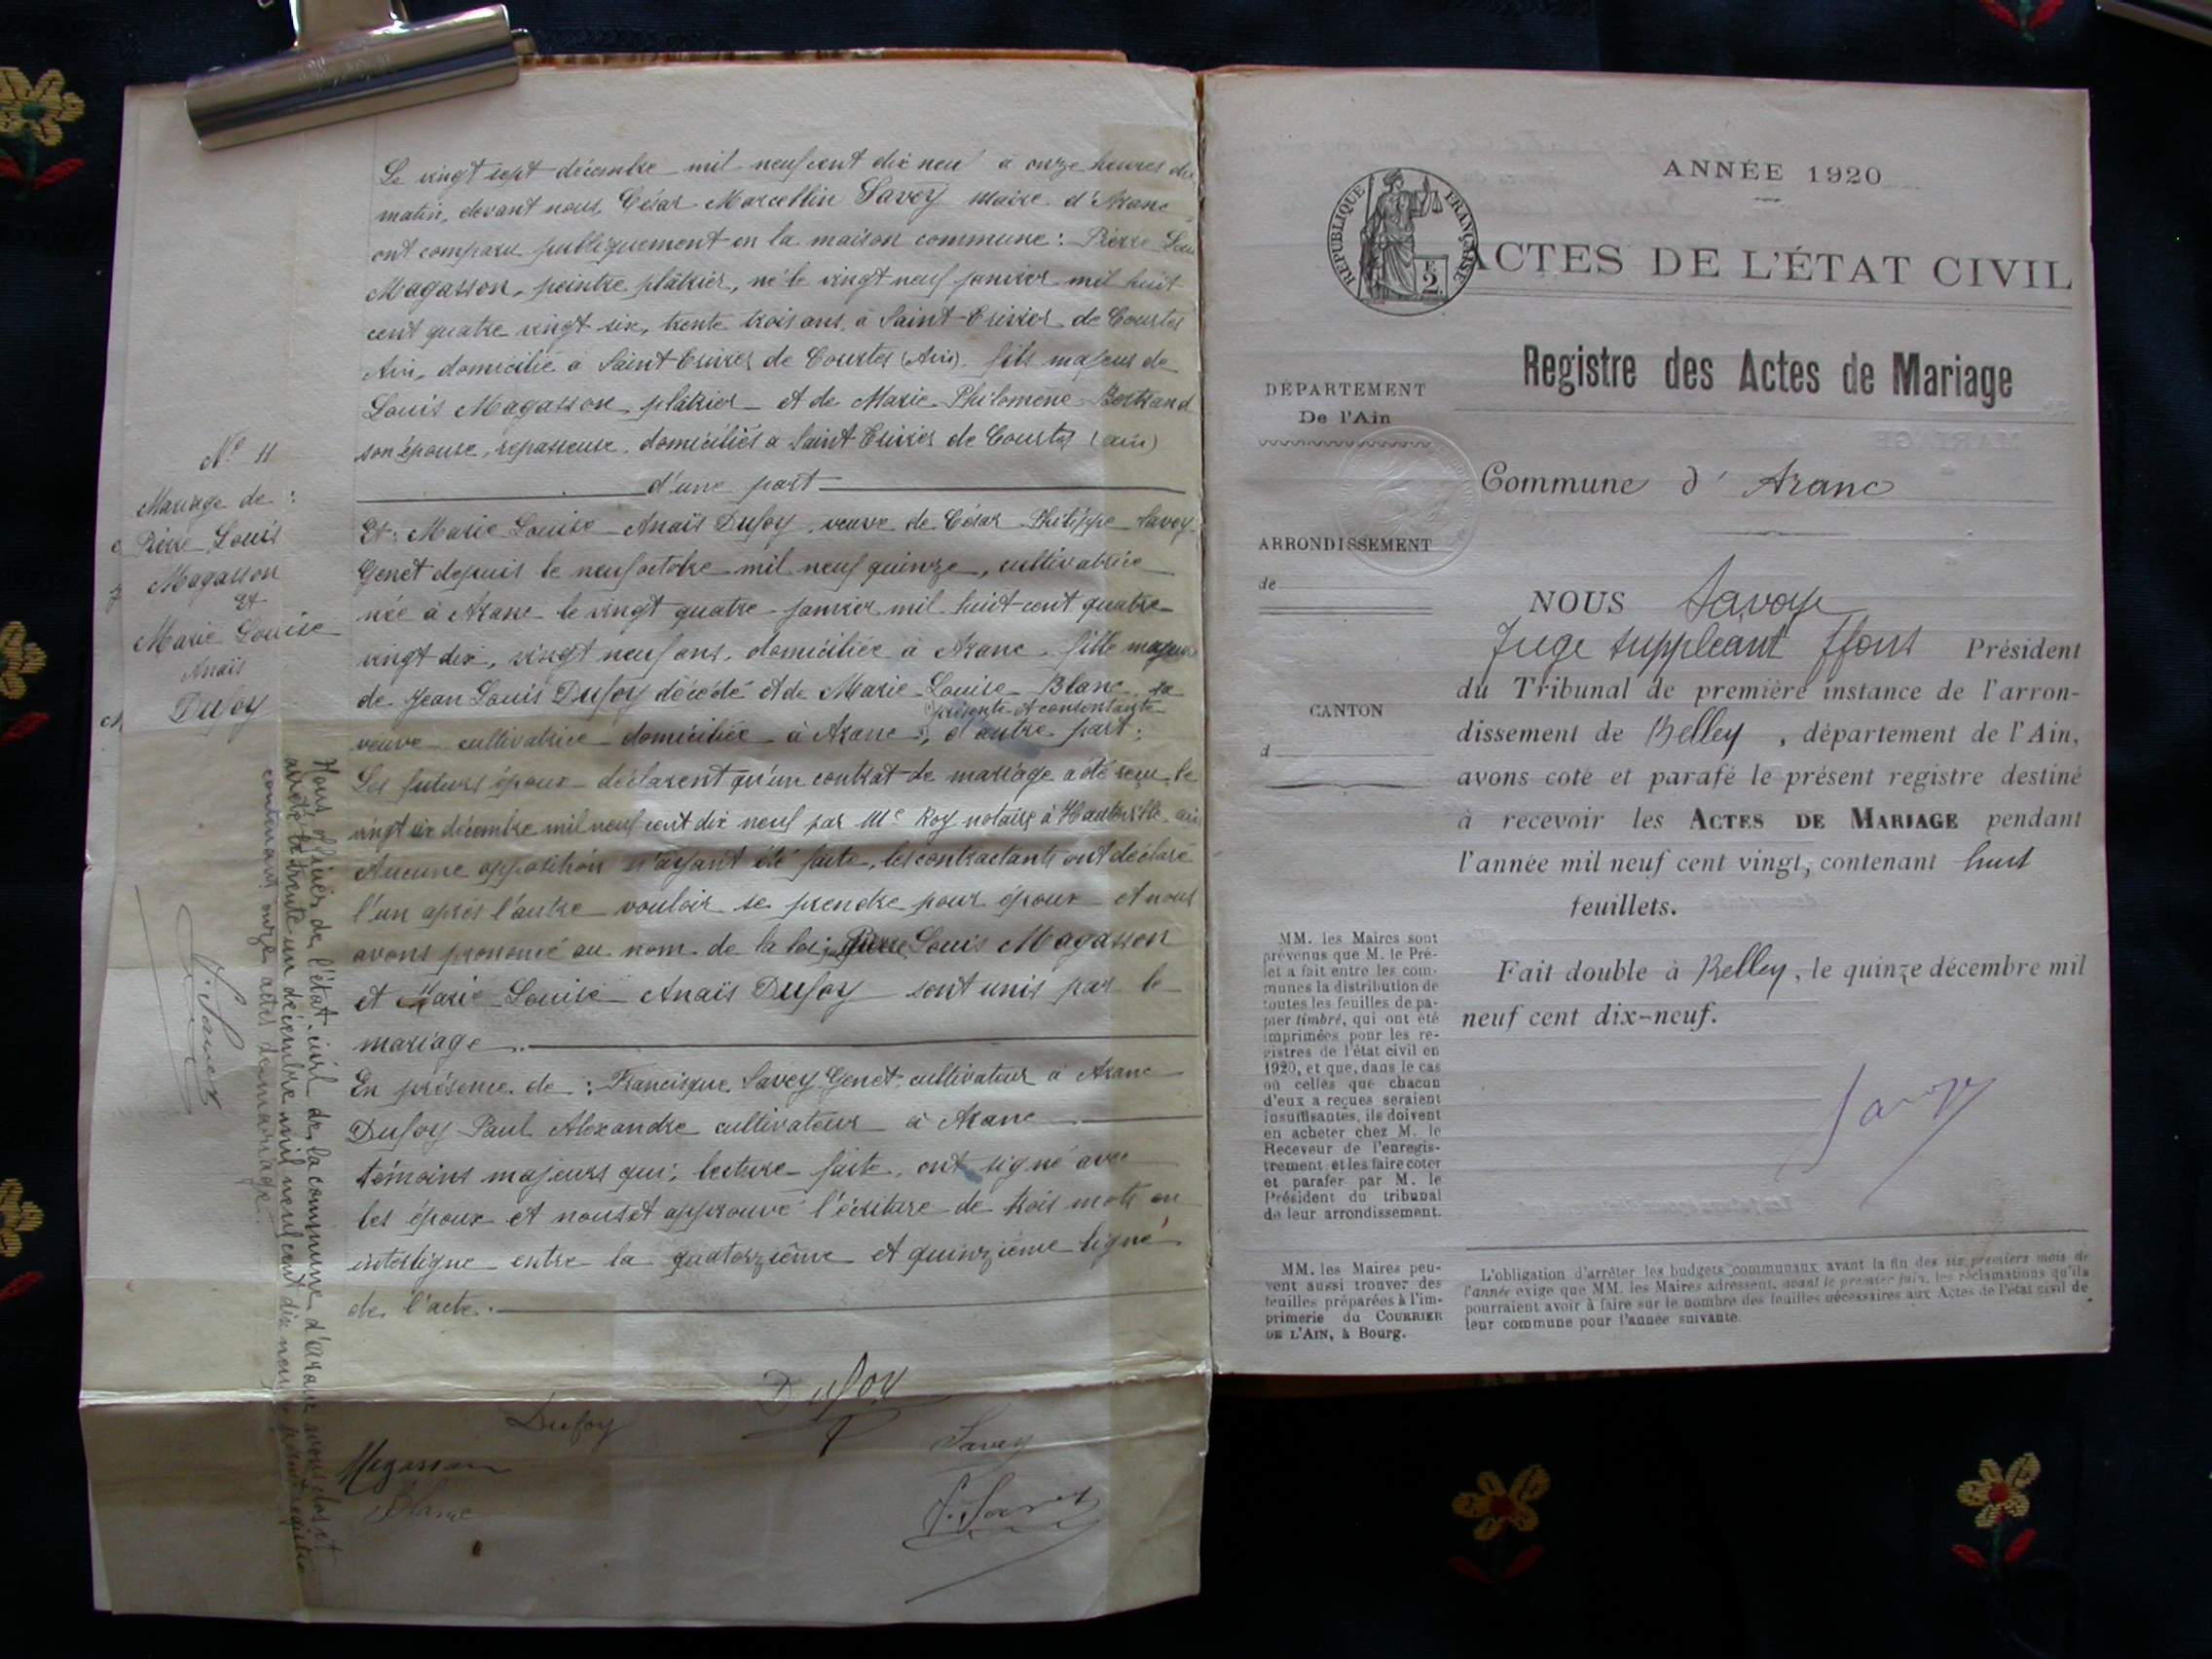 Le vingt sept décembre mil neuf cent dix neuf à onze heures du
matin, devant nous, César Marcellin Savey maire d'Aranc
ont comparu publiquement en la maison commune : Pierre Louis
Magasson, peintre plâtrier, né le vingt neuf janvier mil huit
cent quatre vingt six, trente trois ans, à Saint-Trivier de Courtes
Ain, domicilié à Saint Trivier de Courtes (Ain) fils majeur de
Louis Magasson plâtrier et de Marie Philomène Bertrand
son épouse, repasseuse, domiciliés à Saint Trivier de Courtes (ain)
d'une part
Et : Marie Louise Anaïs Dufoy, veuve de César Philippe Savey
Genet depuis le neuf octobre mil neuf quinze, cultivatrice
née à Aranc le vingt quatre janvier mil huit cent quatre
vingt dix, vingt neuf ans, domiciliée à Aranc, fille majeure
de Jean Louis Dufoy décédé et de Marie Louise Blanc sa
présente et consentante
veuve cultivatrice domiciliée à Aranc, d'autre part ;
Les futurs époux déclarent qu'un contrat de mariage a été reçu le
vingt six décembre mil neuf cent dix neuf par Me Roy notaire à Hauteville ain
Aucune opposition n'ayant été faite, les contractants ont déclaré
l'un après l'autre vouloir se prendre pour époux et nous
avons prononcé au nom de la loi que Pierre Louis Magasson
et Marie Louise Anaïs Dufoy sont unis par le
mariage.
En présence de : Francisque Savey Genet cultivateur à Aranc
Dufoy Paul Alexandre cultivateur à Aranc
témoins majeurs qui, lecture faite, ont signé avec
les époux et nous et approuvé l'écriture de trois mots en
interligne entre la quatorzième et quinzième ligne
de l'acte.
Dufoy
Dufoy
Savey
Magasson
Blanc
C. Savey
No 11
Mariage de :
Pierre Louis
Magasson
Et
Marie Louise
Anaïs
Dufoy
Nous officier de l'état-civil de la commune d'aranc avons clos et
arrêté le trente un décembre mil neuf cent dix neuf le présent registre
contenant onze actes de mariage.
C. Savey
ANNÉE 1920
RÉPUBLIQUE FRANÇAISE
F.
2.
ACTES DE L'ÉTAT CIVIL
Registre des Actes de Mariage
DÉPARTEMENT
De l'Ain
Commune d'Aranc
ARRONDISSEMENT
de
CANTON
d
NOUS Savoye
Juge suppléant ffons Président
du Tribunal de première instance de l'arron-
dissement de Belley, département de l'Ain,
avons coté et parafé le présent registre destiné
à recevoir les ACTES DE MARIAGE pendant
l'année mil neuf cent vingt, contenant huit
feuillets.
Fait double à Belley, le quinze décembre mil
neuf cent dix-neuf.
MM. les Maires sont
prévenus que M. le Pré-
fet a fait entre les com-
munes la distribution de
toutes les feuilles de pa-
pier timbré, qui ont été
imprimées pour les re-
gistres de l'état civil en
1920, et que, dans le cas
où celles que chacun
d'eux a reçues seraient
insuffisantes, ils doivent
en acheter chez M. le
Receveur de l'enregis-
trement et les faire coter
et parafer par M. le
Président du tribunal
de leur arrondissement.
MM. les Maires peu-
vent aussi trouver des
feuilles préparées à l'im-
primerie du COURRIER
DE L'AIN, à Bourg.
L'obligation d'arrêter les budgets communaux avant la fin des six premiers mois de
l'année exige que MM. les Maires adressent, avant le premier juin, les réclamations qu'ils
pourraient avoir à faire sur le nombre des feuilles nécessaires aux Actes de l'état civil de
leur commune pour l'année suivante.